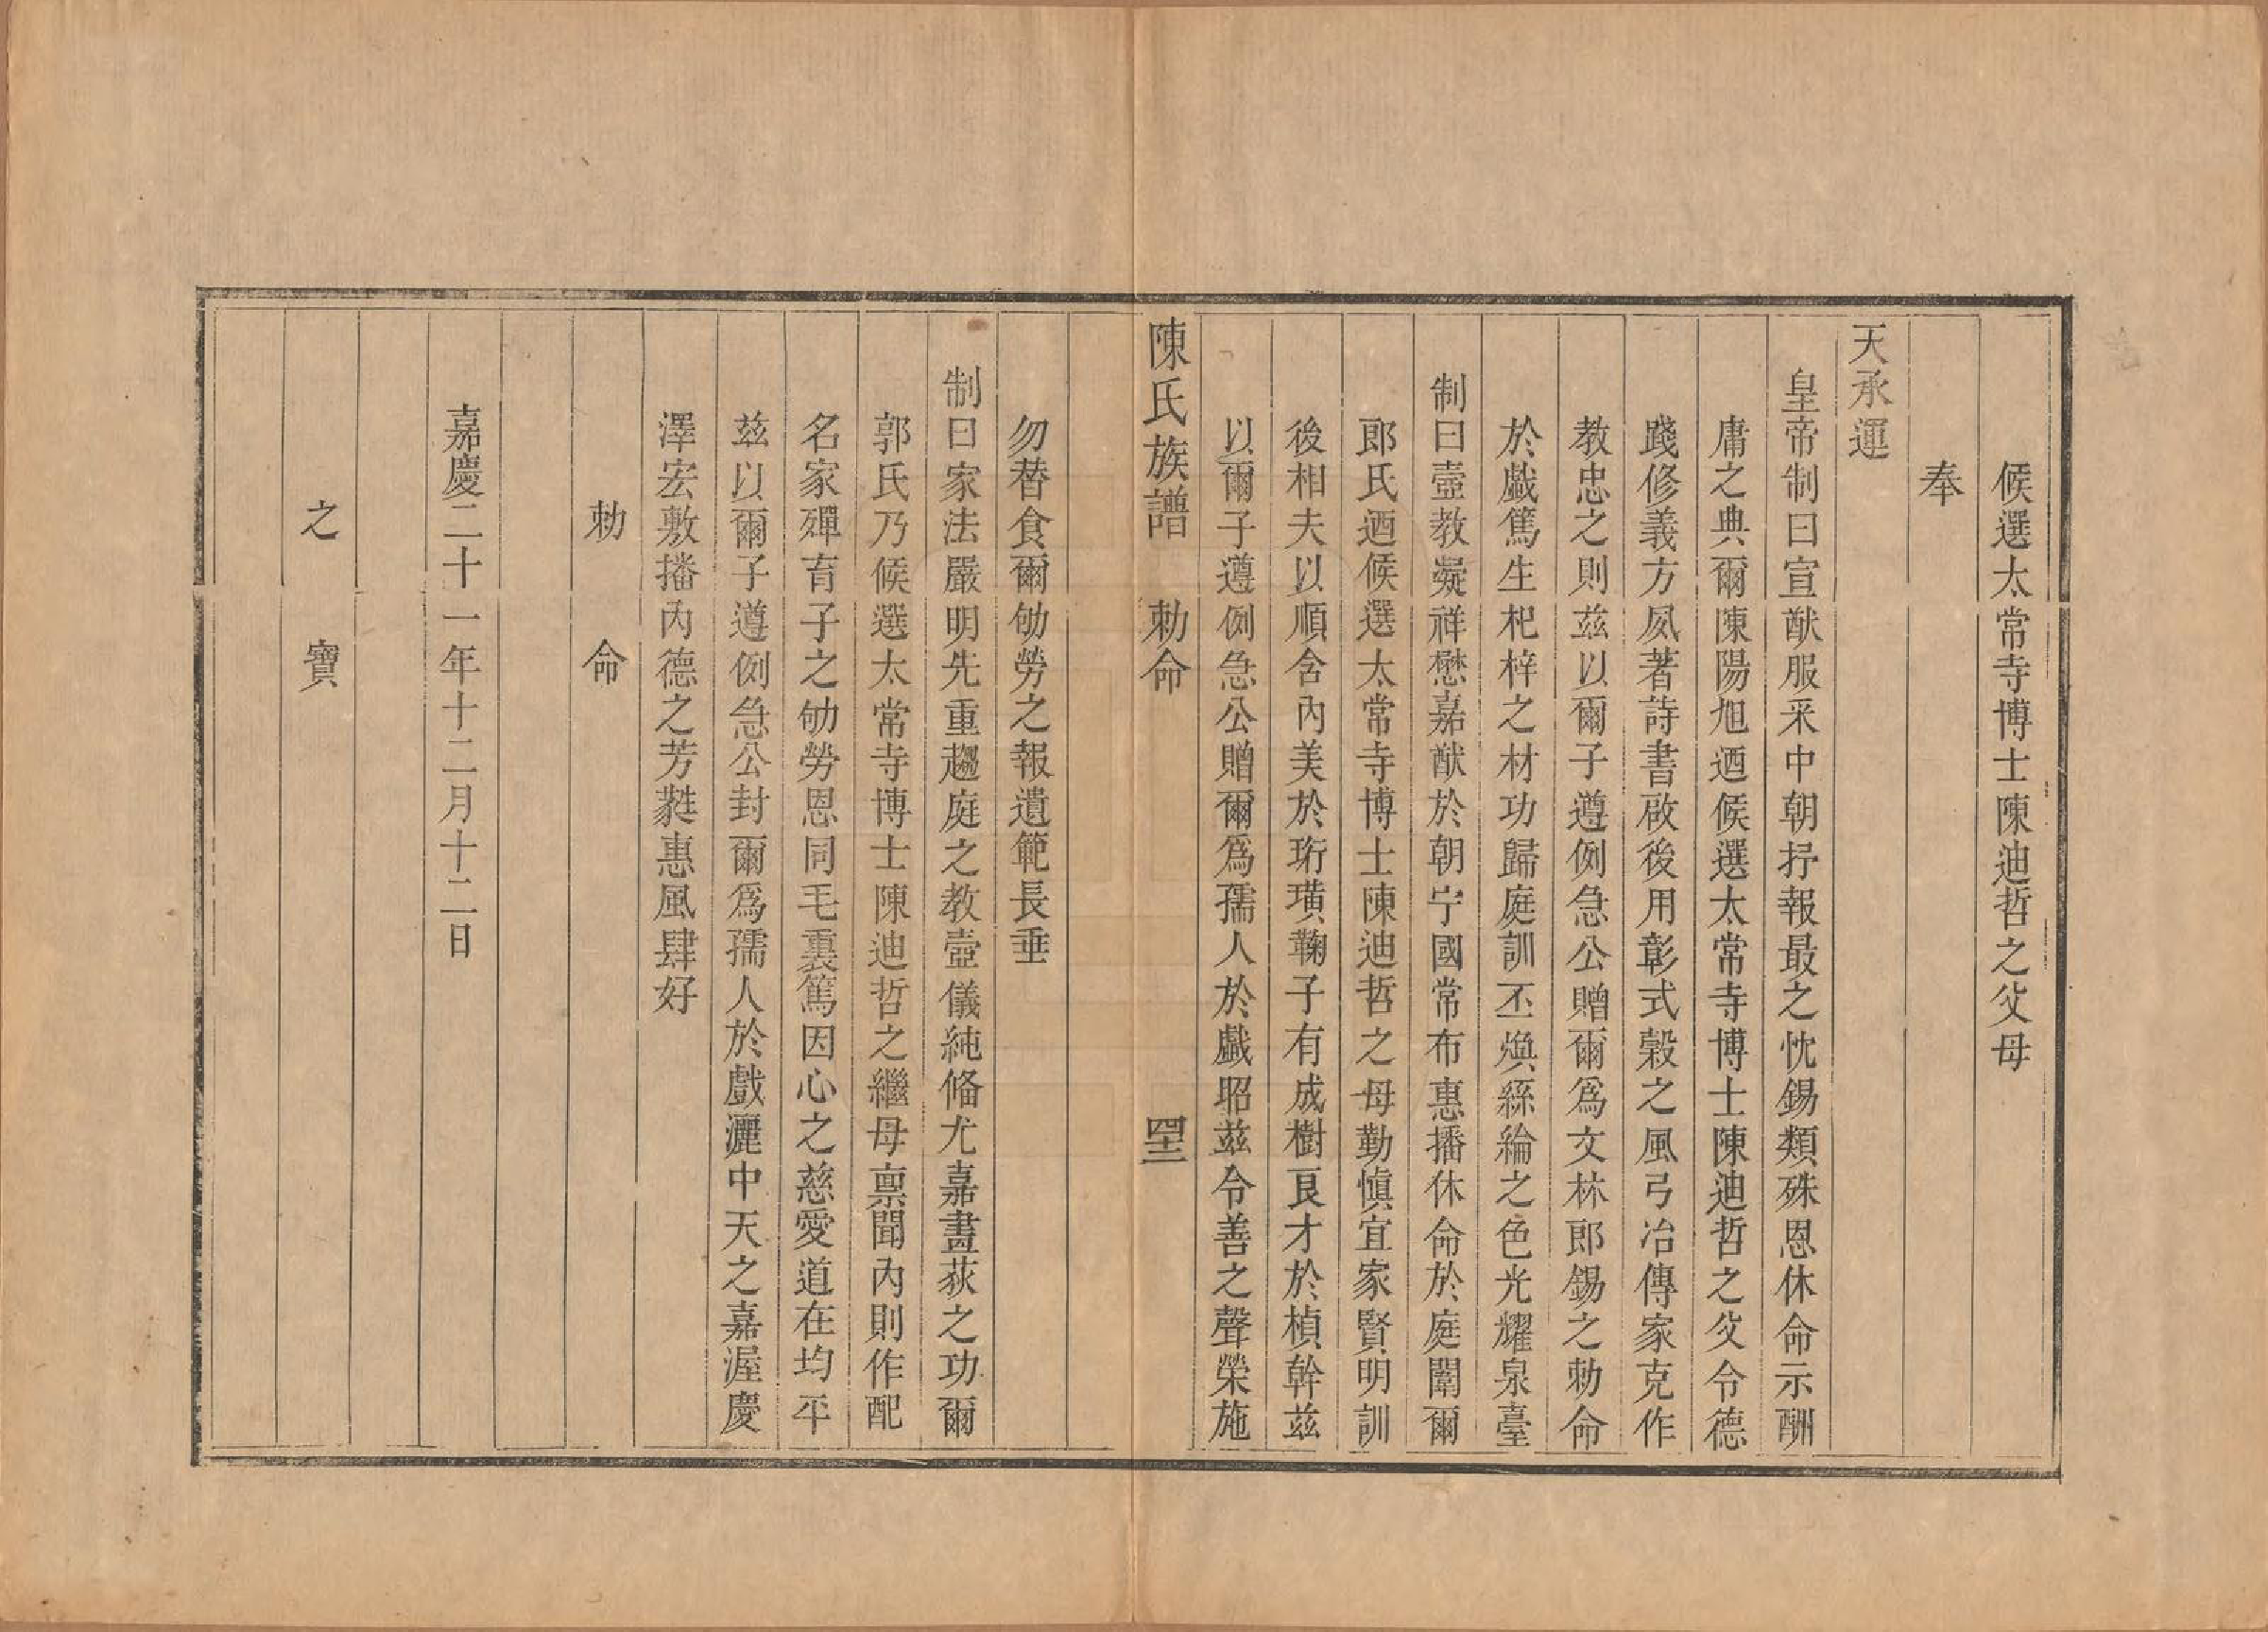 候選太常寺博士陳迪哲之父母
奉
天承運
皇帝制曰宣猷服采中朝抒報最之忱錫類殊恩休命示酬
庸之典爾陳陽旭迺候選太常寺博士陳迪哲之父令德
踐修義方夙著詩書啟後用彰式榖之風弓冶傳家克作
教忠之則兹以爾子遵例急公贈爾爲文林郎錫之勅命
於戲篤生杞梓之材功歸庭訓丕煥絲綸之色光耀泉臺
制曰壼教凝祥懋嘉猷於朝宁國常布惠播休命於庭闈爾
郎氏迺候選太常寺博士陳迪哲之母勤慎宜家賢明訓
後相夫以順含內美於珩璜鞠子有成樹良才於楨幹兹
以爾子遵例急公贈爾爲孺人於戲昭兹令善之聲榮施
陳氏族譜 勅命 四十二
勿替食爾劬勞之報遺範長垂
制曰家法嚴明先重趨庭之教壼儀純備尤嘉畫荻之功爾
郭氏乃候選太常寺博士陳迪哲之繼母禀聞內則作配
名家殫育子之劬勞恩同毛裏篤因心之慈愛道在均平
兹以爾子遵例急公封爾爲孺人於戲灑中天之嘉渥慶
澤宏敷播內德之芳蕤惠風肆好
勅命
嘉慶二十一年十二月十二日
之寶